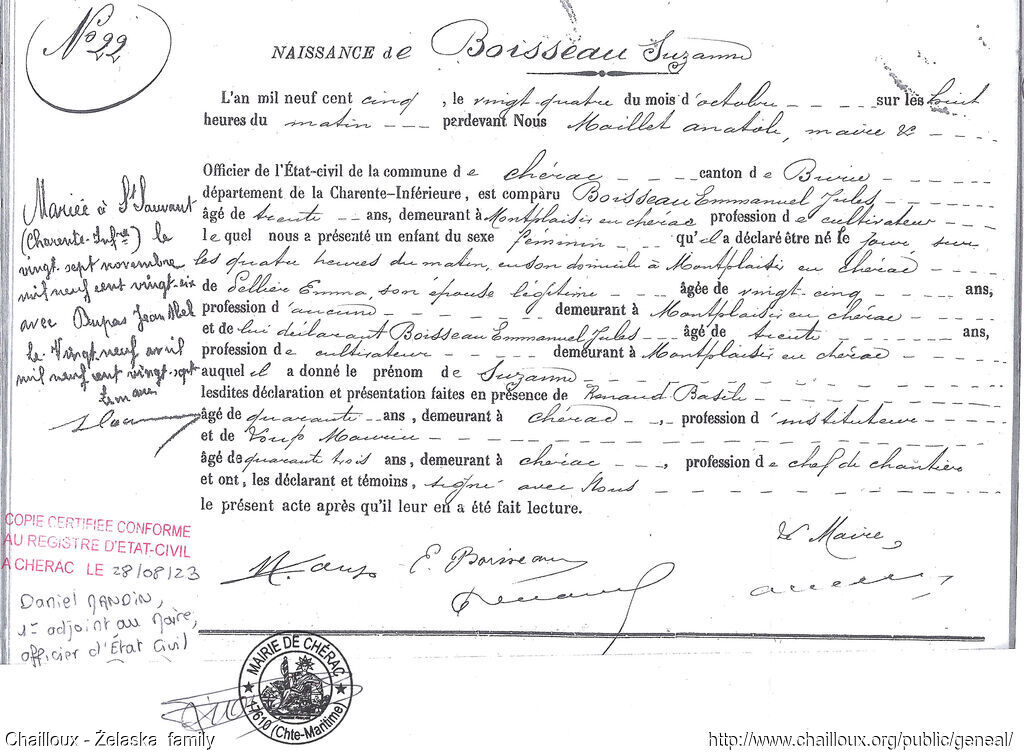 No 22
NAISSANCE de Boisseau Suzanne
L'an mil neuf cent cinq, le vingt-quatre du mois d'octobre sur les huit
heures du matin pardevant Nous Maillet Anatole, maire &
Officier de l'État-civil de la commune de Chérac canton de Burie
département de la Charente-Inférieure, est comparu Boisseau Emmanuel Jules
âgé de trente ans, demeurant à Montplaisir en Chérac profession de cultivateur
lequel nous a présenté un enfant du sexe féminin qu'il a déclaré être né le jour, sur
les quatre heures du matin, en son domicile à Montplaisir en Chérac
de Emma, son épouse légitime âgée de vingt cinq ans,
profession d'aucune demeurant à Montplaisir en Chérac
et de lui déclarant Boisseau Emmanuel Jules âgé de trente ans,
profession de cultivateur demeurant à Montplaisir en Chérac
auquel il a donné le prénom de Suzanne
lesdites déclaration et présentation faites en présence de Renaud Basile
âgé de quarante ans, demeurant à Chérac, profession d'instituteur
et de Loup
âgé de quarante trois ans, demeurant à Chérac, profession de chef de chantier
et ont, les déclarant et témoins, signé avec Nous
le présent acte après qu'il leur en a été fait lecture.
Le Maire,
E. Boisseau
Mariée à St Sauvant
(Charente-Infre) le
vingt sept novembre
mil neuf cent vingt-six
avec Dupas Jean Abel
le vingt neuf avril
mil neuf cent vingt-sept
Le maire
COPIE CERTIFIEE CONFORME
AU REGISTRE D'ETAT-CIVIL
A CHERAC LE 28/08/23
Daniel MANDIN,
1er adjoint au Maire,
officier d'État Civil
MAIRIE DE CHÉRAC
17610 (Chte-Maritime)
Chailloux - Želaska family
http://www.chailloux.org/public/geneal/